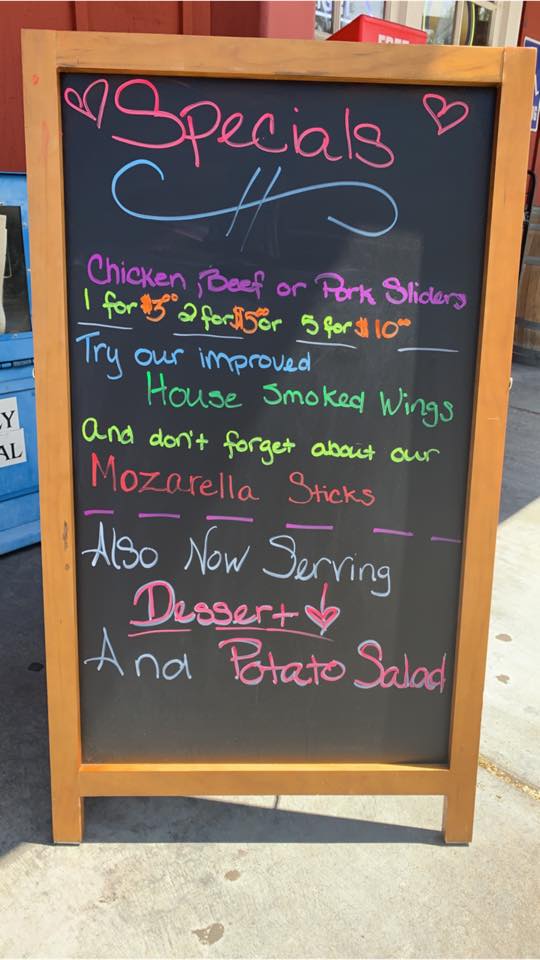 FREE
Specials
Chicken, Beef or Pork Sliders
1 for $3⁰⁰ 2 for $5⁰⁰ or 5 for $10⁰⁰
Try our improved
House Smoked Wings
And don't forget about our
Mozarella Sticks
Also Now Serving
Dessert
And Potato Salad